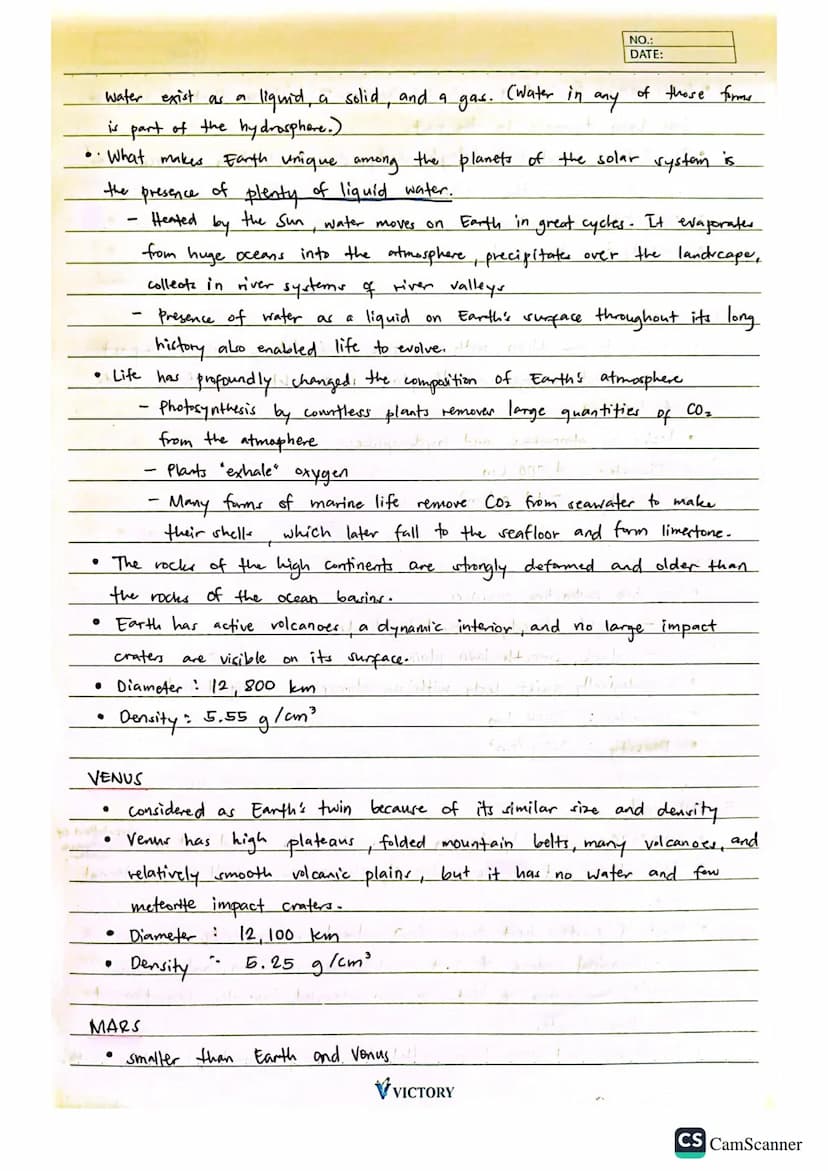 NO.:
DATE:
Water exist as a liquid, a solid, and a gas. (Water in any of these forms
is part of the hydrosphere.)
• What makes Earth unique among the planets of the solar system is
the presence of plenty of liquid water.
- Heated by the Sun, water moves on Earth in great cycles. It evaporates
from huge oceans into the atmosphere, precipitates over the landscape,
collects in river systems of river valleys
- Presence of water as a liquid on Earth's surface throughout its long
history also enabled life to evolve.
• Life has profoundly changed the composition of Earth's atmosphere
- Photosynthesis by countless plants removes large quantities of CO₂
from the atmophere
- Plants "exhale" oxygen
- Many forms of marine life remove CO₂ from seawater to make
their shells, which later fall to the seafloor and form limestone.
• The rocks of the high continents are strongly deformed and older than
the rocks of the ocean basins.
• Earth has active volcanoes, a dynamic interior, and no large impact
craters are visible on its surface.
• Diameter : 12,800 km
• Density : 5.55 g/cm³
VENUS
• considered as Earth's twin because of its similar size and density
• Venus has high plateaus, folded mountain belts, many volcanoes, and
relatively smooth volcanic plains, but it has no water and few
meteorite impact craters.
• Diameter : 12,100 km
• Density : 5.25 g/cm³
MARS
• smaller than Earth and Venus
VICTORY
CS CamScanner